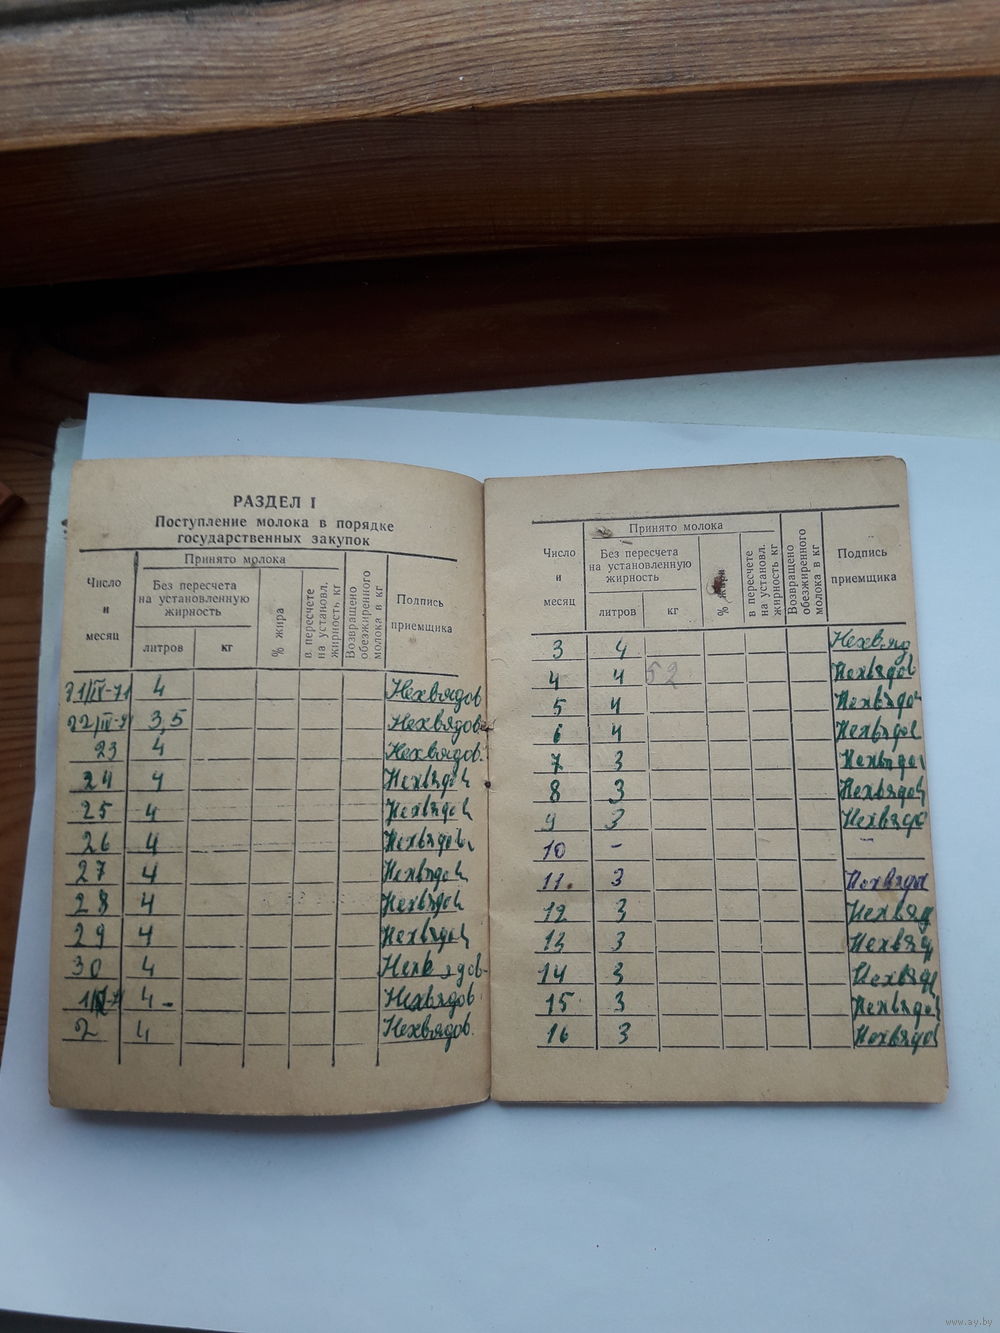 РАЗДЕЛ I
Поступление молока в порядке
государственных закупок
Число
и
месяц
Принято молока
Без пересчета
на установленную
жирность
литров
кг
% жира
в пересчете
на установл.
жирность кг
Возвращено
обезжиренного
молока в кг
Подпись
приемщика
21/IV-71 4 Нехвядов
22/IV-71 3,5 Нехвядов
23 4 Нехвядов.
24 4 Нехвядов
25 4 Нехвядов
26 4 Нехвядов
27 4 Нехвядов
28 4 Нехвядов
29 4 Нехвядов
30 4 Нехвядов
4 - Нехвядов
2 4 Нехвядов.
Число
и
месяц
Принято молока
Без пересчета
на установленную
жирность
литров
кг
% жира
в пересчете
на установл.
жирность кг
Возвращено
обезжиренного
молока в кг
Подпись
приемщика
3 4 Нехвяд
4 4 52 Нехвядов
5 4 Нехвядов
6 4 Нехвядов
7 3 Нехвядов
8 3 Нехвядов
9 3 Нехвядо
10 - -
11. 3 Нехвядо
12 3 Нехвяд
13 3 Нехвяд
14 3 Нехвяд
15 3 Нехвядов
16 3 Нехвядов
www.ay.by